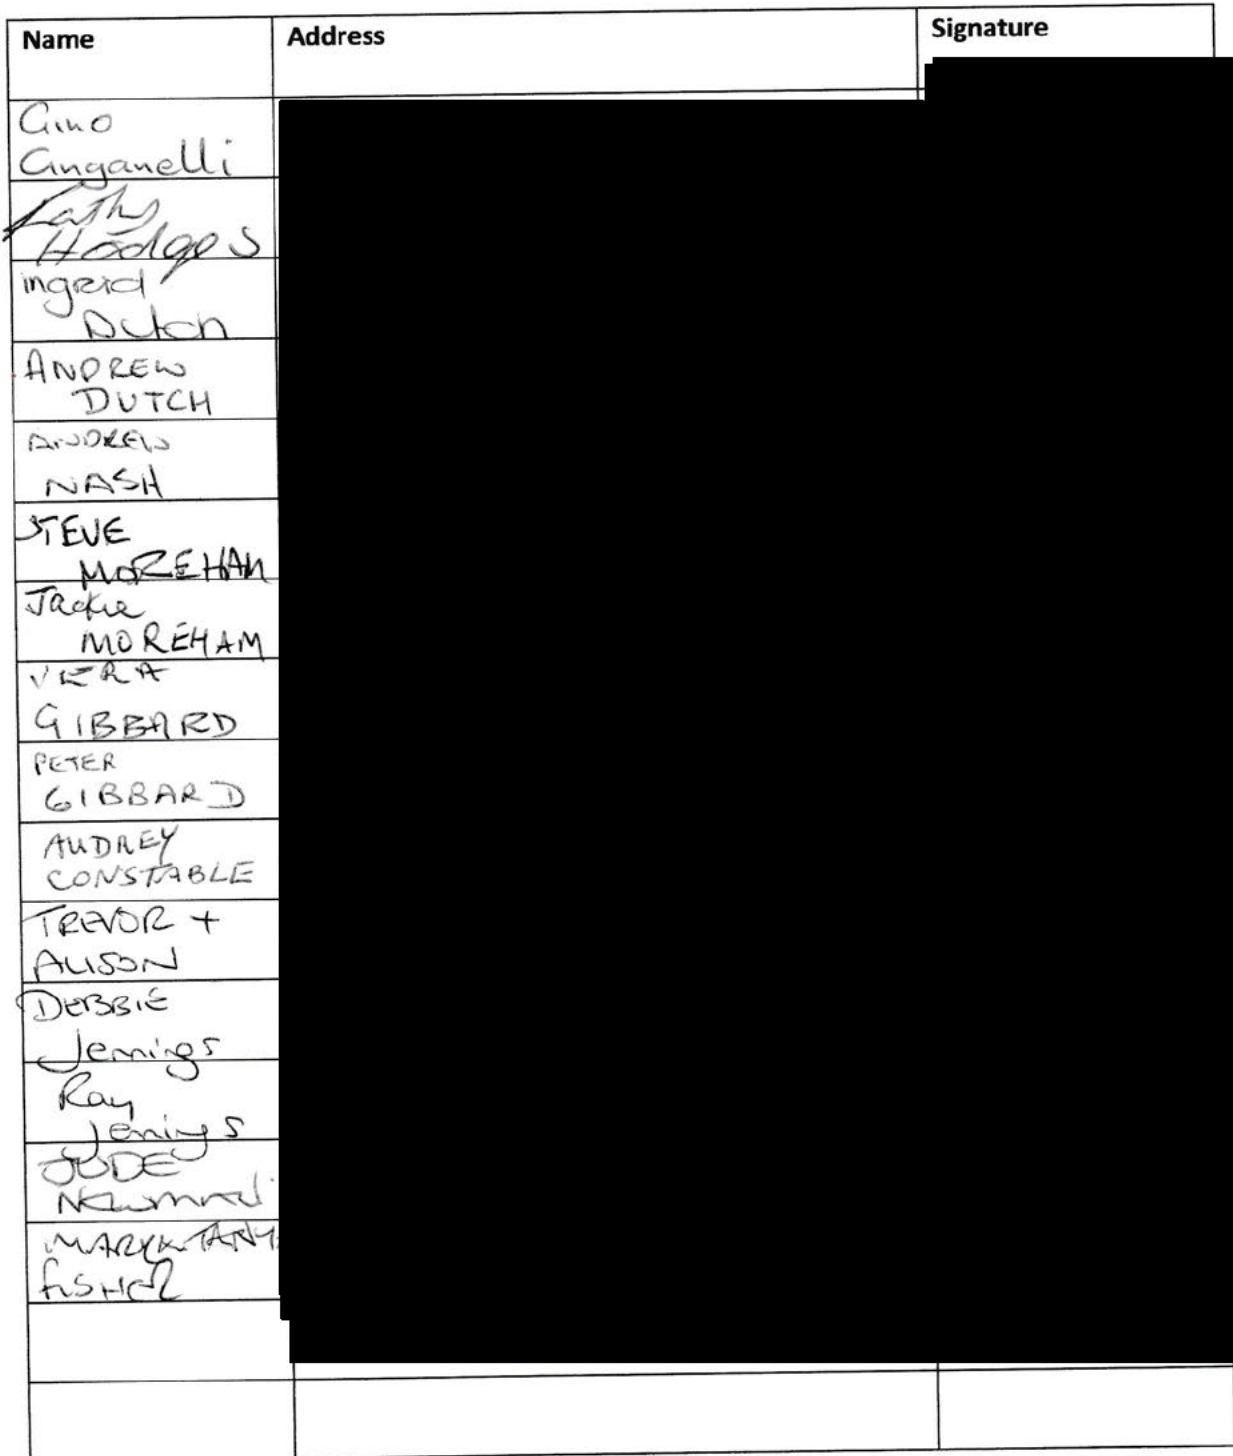 Name Address Signature
Gino
Cinganelli
Kathy
Hodges
ingrid
Dutch
ANDREW
DUTCH
ANDREW
NASH
STEVE
MOREHAM
Jackie
MOREHAM
VIERA
GIBBARD
PETER
GIBBARD
AUDREY
CONSTABLE
TREVOR +
ALISON
DEBBIE
Jennings
Ray
Jennings
JUDE
Newman
FISHER